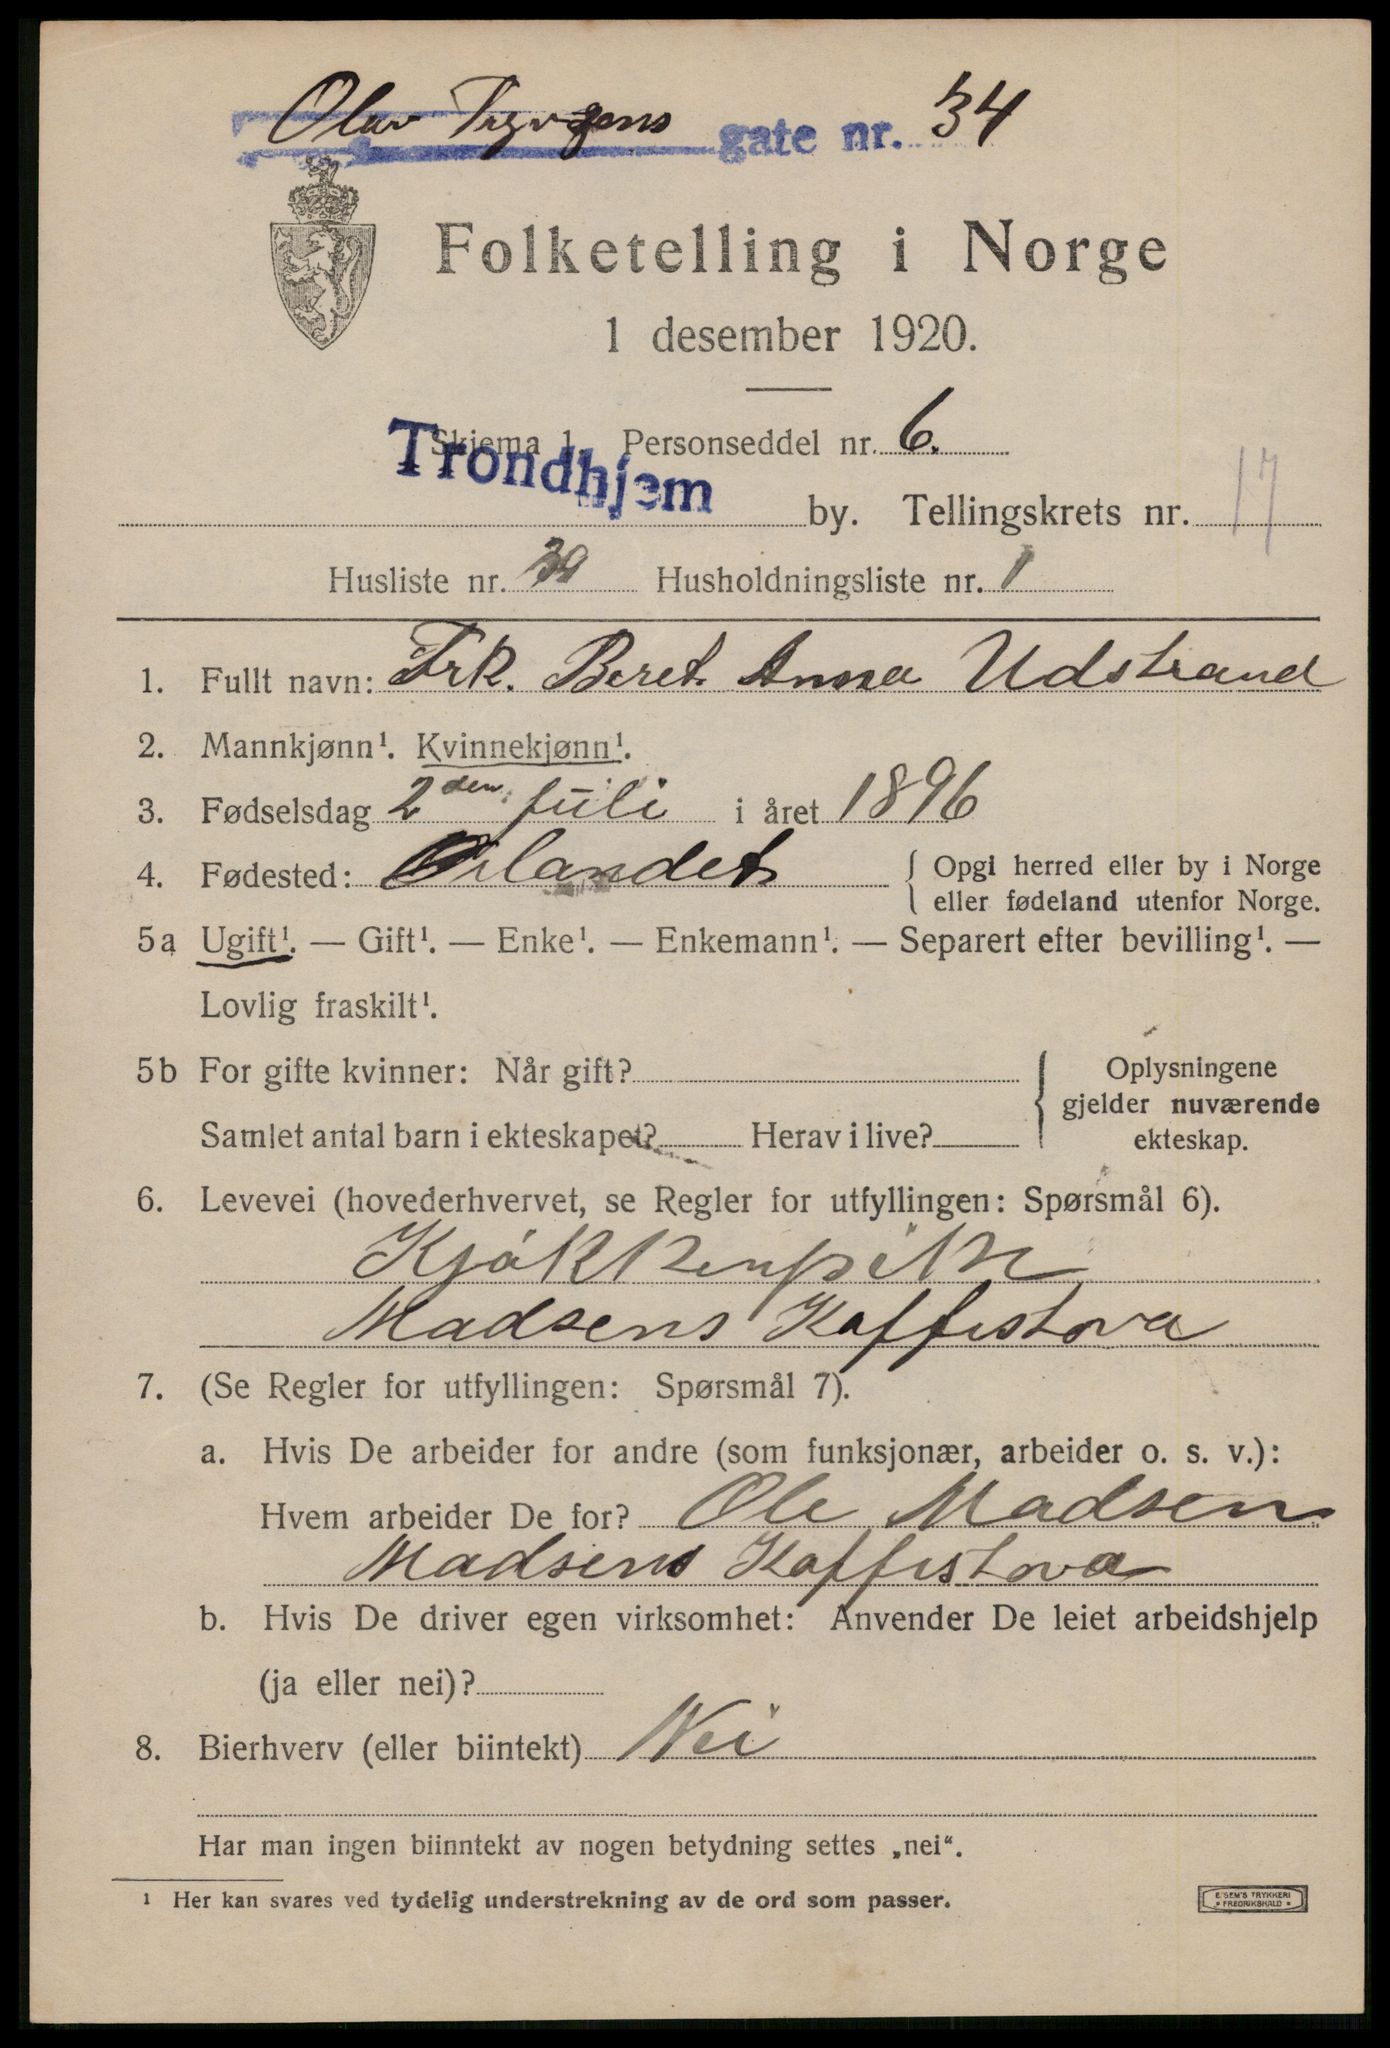 Olav Trygvgens gate nr. 34
Folketelling i Norge
1 desember 1920.
Skjema 1 Personseddel nr. 6.
Trondhjem by. Tellingskrets nr. 17
Husliste nr. 39 Husholdningsliste nr. 1
1. Fullt navn: Frk. Beret Anna Udstrand
2. Mannkjønn¹. Kvinnekjønn¹.
3. Fødselsdag 2den juli i året 1896
4. Fødested: Ørlandet { Opgi herred eller by i Norge
eller fødeland utenfor Norge.
5a Ugift¹. — Gift¹. — Enke¹. — Enkemann¹. — Separert efter bevilling¹. —
Lovlig fraskilt¹.
5b For gifte kvinner: Når gift? { Oplysningene
gjelder nuværende
Samlet antal barn i ekteskapet? Herav i live? ekteskap.
6. Levevei (hovederhvervet, se Regler for utfyllingen: Spørsmål 6).
Kjøkkenpike
Madsens Kaffistova
7. (Se Regler for utfyllingen: Spørsmål 7).
a. Hvis De arbeider for andre (som funksjonær, arbeider o. s. v.):
Hvem arbeider De for? Ole Madsen
Madsens Kaffistova
b. Hvis De driver egen virksomhet: Anvender De leiet arbeidshjelp
(ja eller nei)?
8. Bierhverv (eller biintekt) Nei
Har man ingen biinntekt av nogen betydning settes „nei“.
¹ Her kan svares ved tydelig understrekning av de ord som passer.
E. SEM'S TRYKKERI
* FREDRIKSHALD *